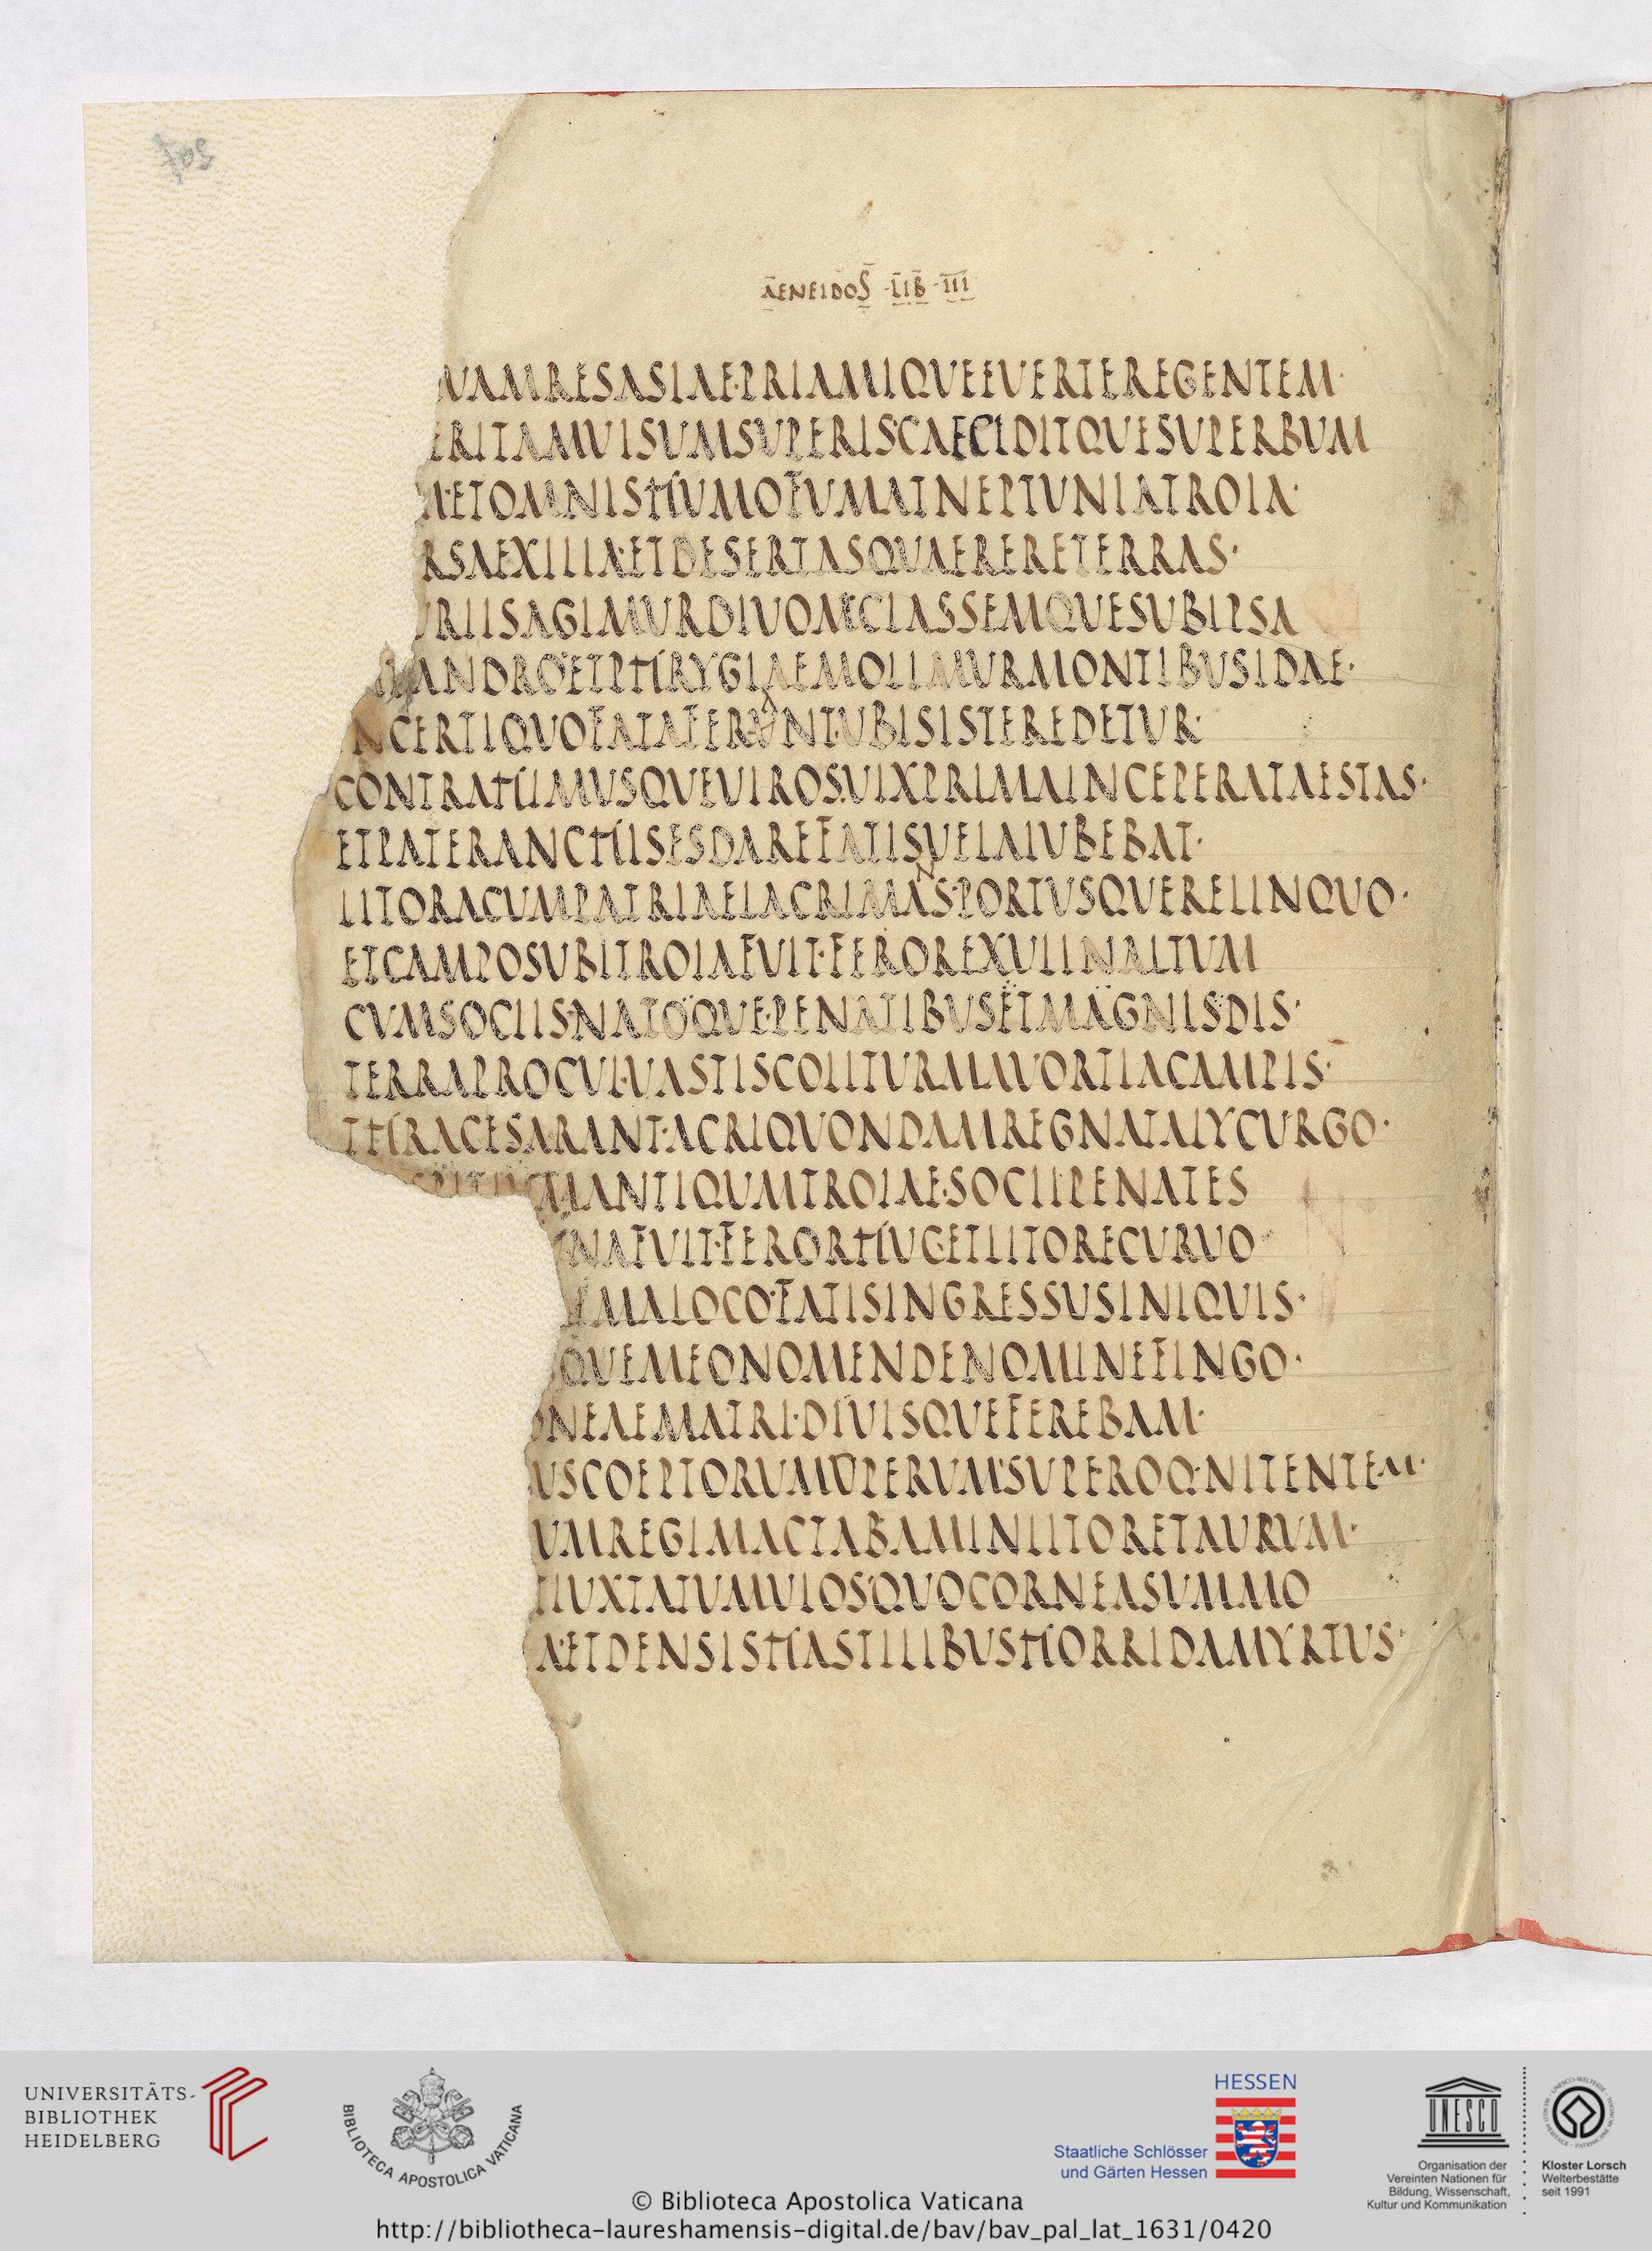 705
AENEIDOS · LIB · III
VAMRESASIAE·PRIAMIQUEEVERTEREGENTEM·
ERITAMVISUMSUPERIS·CAECIDITQUESUPERBUM
M·ETOMNISHUMOFUMATNEPTUNIATROIA·
RSAEXILIA·ETDESERTASQUAERERETERRAS·
URIISAGIMURDIVOMCLASSEMQUESUBIPSA
MANDROETPHRYGIAEMOLIMURMONTIBUSIDAE·
NCERTIQUOFATAFERUNT·UBISISTEREDETUR·
CONTRAHIMUSQUEVIROS·VIXPRIMAINCEPERATAESTAS·
ETPATERANCHISESDAREFATISVELAIUBEBAT·
LITORACUMPATRIAELACRIMANS·PORTUSQUERELINQUO·
ETCAMPOSUBITROIAFUIT·FEROREXULINALTUM
CUMSOCIIS·NATOQUE·PENATIBUSETMAGNISDIS·
TERRAPROCUL·VASTISCOLITURMAVORTIACAMPIS·
THRACESARANT·ACRIQUONDAMREGNATALYCURGO·
SPITIUMANTIQUMTROIAE·SOCIIPENATES
NAFUIT·FERORHUC·ETLITORECURVO
MALOCO·FATISINGRESSUSINIQUIS·
QUEMEONOMENDENOMINEFINGO·
ONEAEMATRI·DIVISQUEFEREBAM·
USCOEPTORUMOPERUM·SUPEROQ·NITENTEM·
UMREGIMACTABAMINLITORETAURUM·
TIUXTATUMULOS·QUOCORNEASUMMO
A·ETDENSISHASTILIBUSHORRIDAMYRTUS·
UNIVERSITÄTS-
BIBLIOTHEK
HEIDELBERG
BIBLIOTECA APOSTOLICA VATICANA
HESSEN
Staatliche Schlösser
und Gärten Hessen
UNESCO
Organisation der
Vereinten Nationen für
Bildung, Wissenschaft,
Kultur und Kommunikation
Kloster Lorsch
Welterbestätte
seit 1991
© Biblioteca Apostolica Vaticana
http://bibliotheca-laureshamensis-digital.de/bav/bav_pal_lat_1631/0420